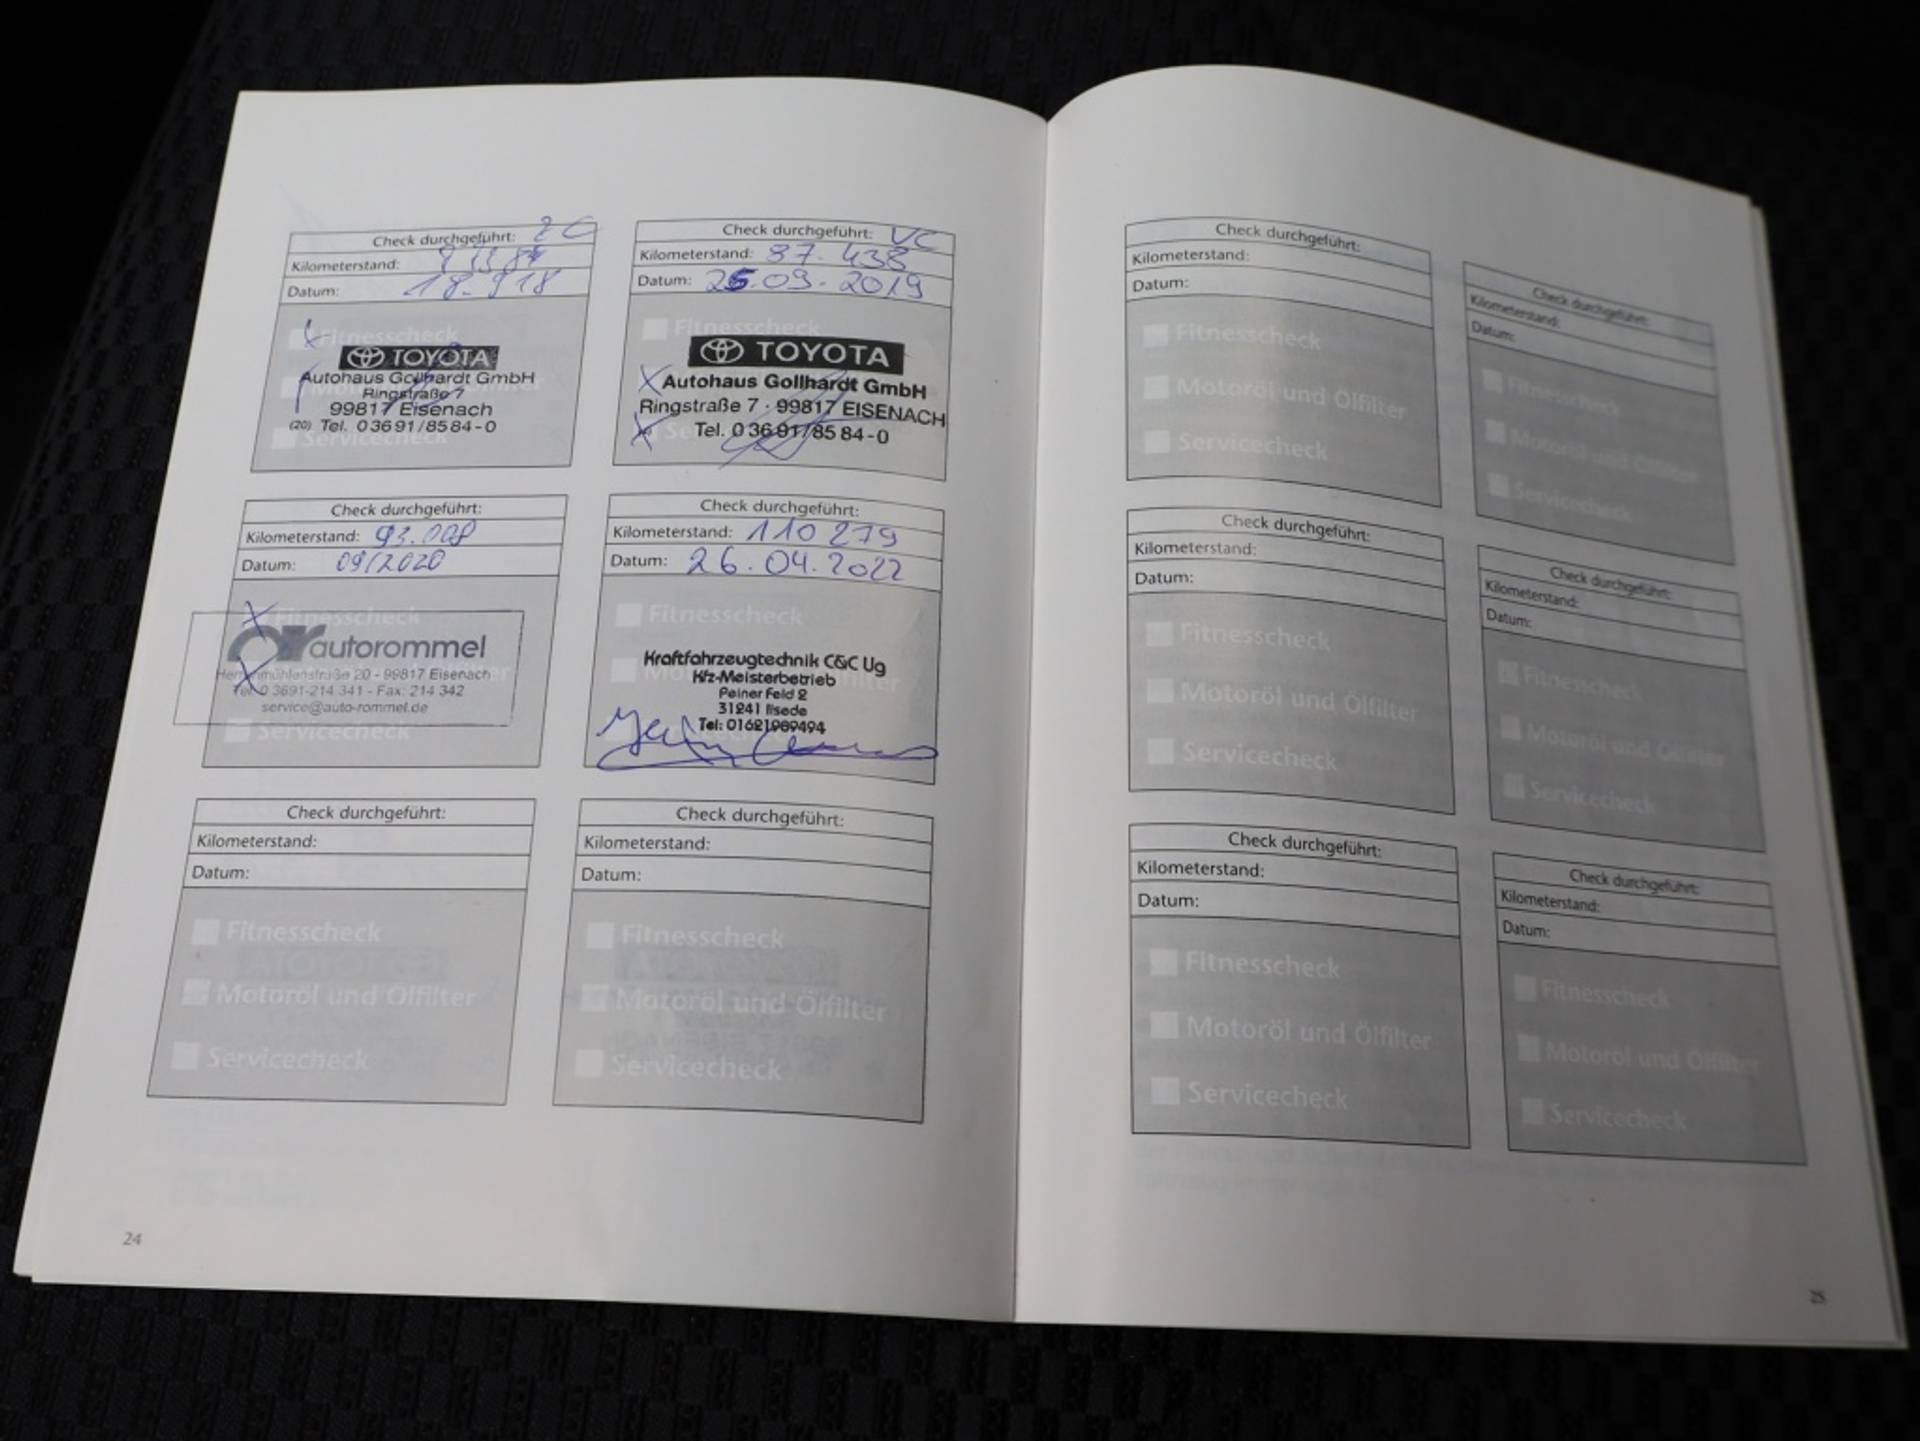 Check durchgeführt:
Kilometerstand:
Datum: 18.918
Fitnesscheck
TOYOTA
Autohaus Gollhardt GmbH
Ringstraße 7
99817 Eisenach
(20) Tel. 03691/8584-0
Servicecheck
Check durchgeführt: VC
Kilometerstand: 87.438
Datum: 25.09.2019
Fitnesscheck
TOYOTA
Autohaus Gollhardt GmbH
Ringstraße 7 · 99817 EISENACH
Tel. 03691/8584-0
Check durchgeführt:
Kilometerstand: 93.008
Datum: 09/2020
Fitnesscheck
autorommel
Herrenmühlenstraße 20 - 99817 Eisenach
Tel. 0 3691-214 341 - Fax: 214 342
service@auto-rommel.de
Servicecheck
Check durchgeführt:
Kilometerstand: 110 279
Datum: 26.04.2022
Fitnesscheck
Kraftfahrzeugtechnik C&C Ug
Kfz-Meisterbetrieb
Peiner Feld 2
31241 Ilsede
Tel: 01621969494
Check durchgeführt:
Kilometerstand:
Datum:
Fitnesscheck
Motoröl und Ölfilter
Servicecheck
Check durchgeführt:
Kilometerstand:
Datum:
Fitnesscheck
Motoröl und Ölfilter
Servicecheck
24
Check durchgeführt:
Kilometerstand:
Datum:
Fitnesscheck
Motoröl und Ölfilter
Servicecheck
Check durchgeführt:
Kilometerstand:
Datum:
Fitnesscheck
Motoröl und Ölfilter
Servicecheck
Check durchgeführt:
Kilometerstand:
Datum:
Fitnesscheck
Motoröl und Ölfilter
Servicecheck
Check durchgeführt:
Kilometerstand:
Datum:
Fitnesscheck
Motoröl und Ölfilter
Servicecheck
Check durchgeführt:
Kilometerstand:
Datum:
Fitnesscheck
Motoröl und Ölfilter
Servicecheck
Check durchgeführt:
Kilometerstand:
Datum:
Fitnesscheck
Motoröl und Ölfilter
Servicecheck
25